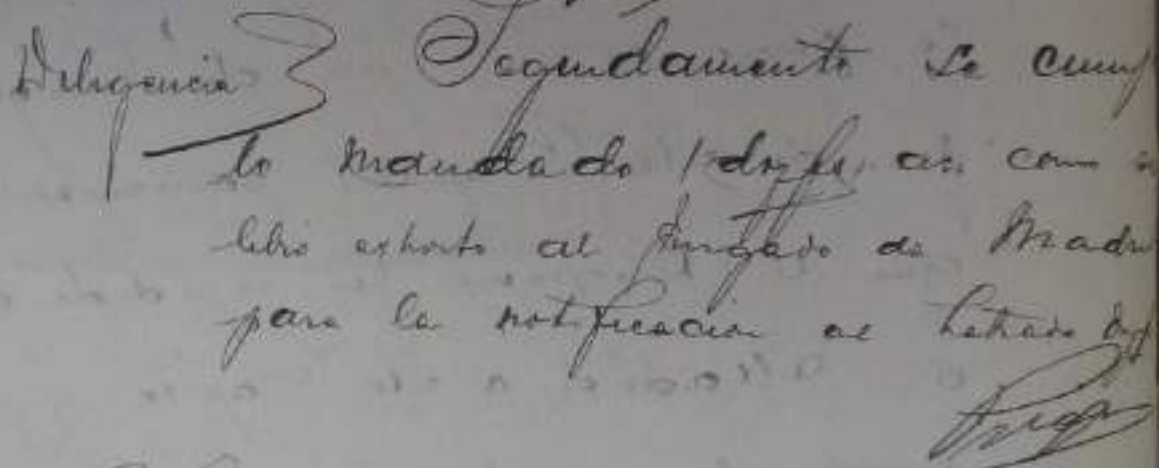 Diligencia } Segudamente se cump
lo mandado, doy fe, asi como
libro exhorto al Juzgado de Madri
para la notificacion al Letrado